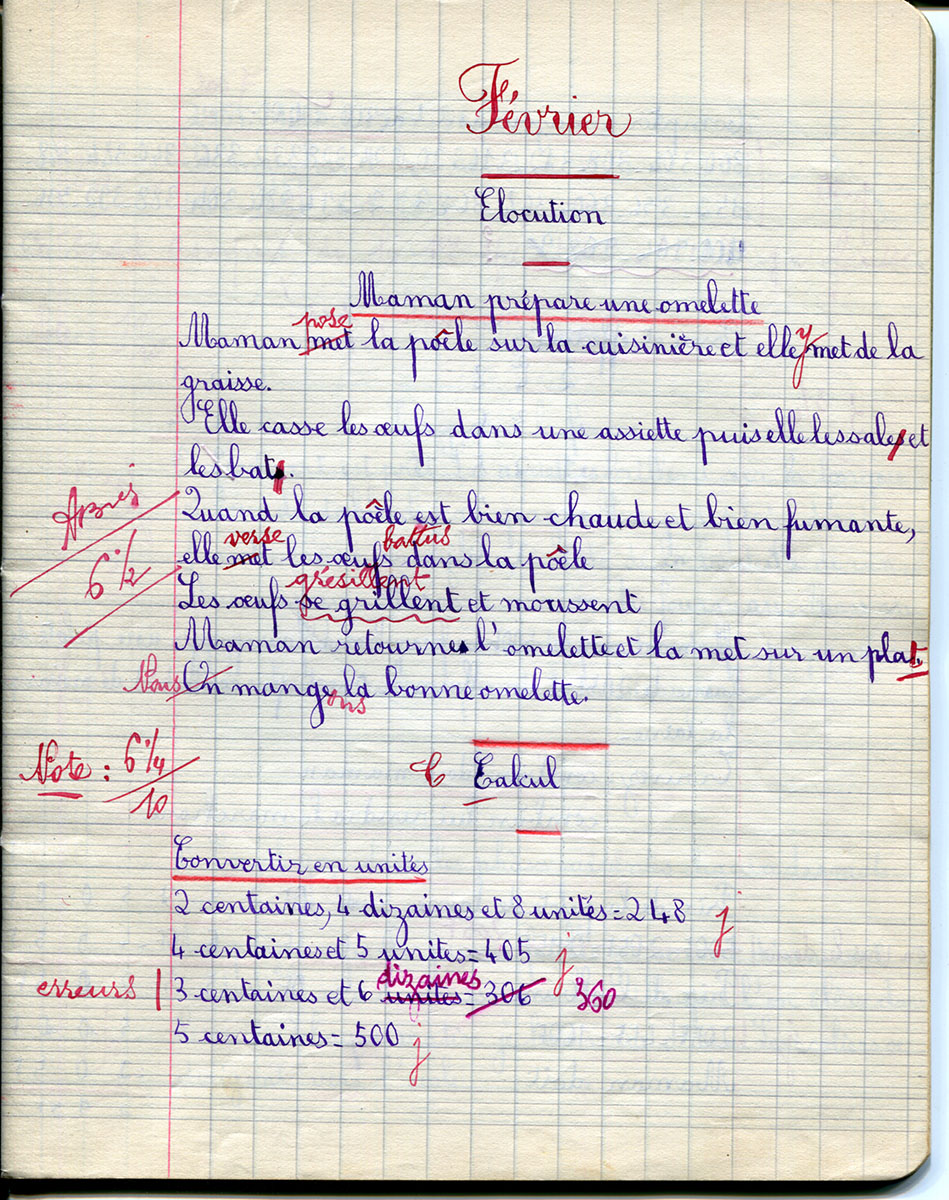 Février
Elocution
Maman prépare une omelette
pose
Maman met la poêle sur la cuisinière et elle y met de la
graisse.
Elle casse les œufs dans une assiette puis elle les sale et
les bat.
Quand la poêle est bien chaude et bien fumante,
verse battus
elle met les œufs dans la poêle
grésillent
Les œufs se grillent et moussent
Maman retourne l'omelette et la met sur un plat.
Nous On mange ons la bonne omelette.
6 1/2
Note : 6 1/4
10
C Calcul
Convertir en unités
2 centaines, 4 dizaines et 8 unités = 248 j
4 centaines et 5 unites = 405 j
dizaines
erreurs 3 centaines et 6 unités = 306 360
5 centaines = 500 j